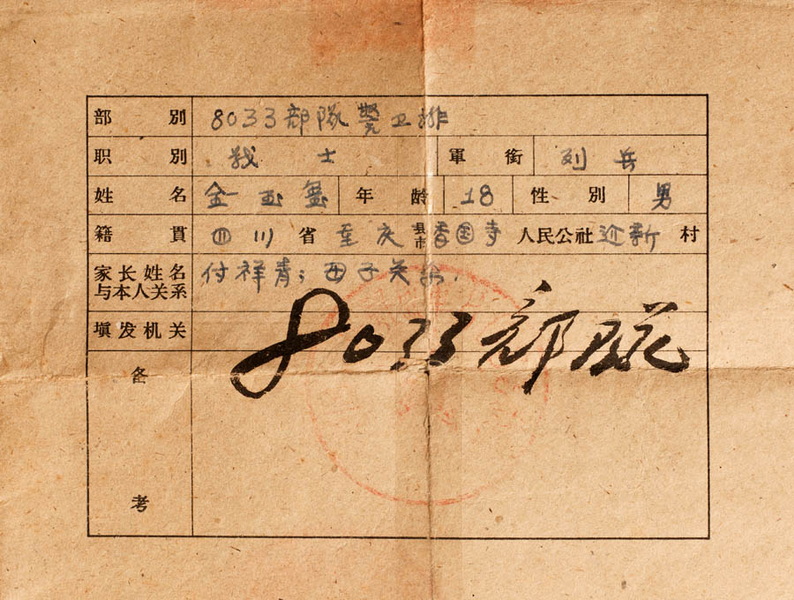 部別 8033部隊警卫排
职別 战士 軍銜 列兵
姓名 金玉 年龄 18 性別 男
籍貫 四川省重庆县市香国寺人民公社迎新村
家长姓名 付祥青；母子关
与本人关系
填发机关 8033部队
备
考